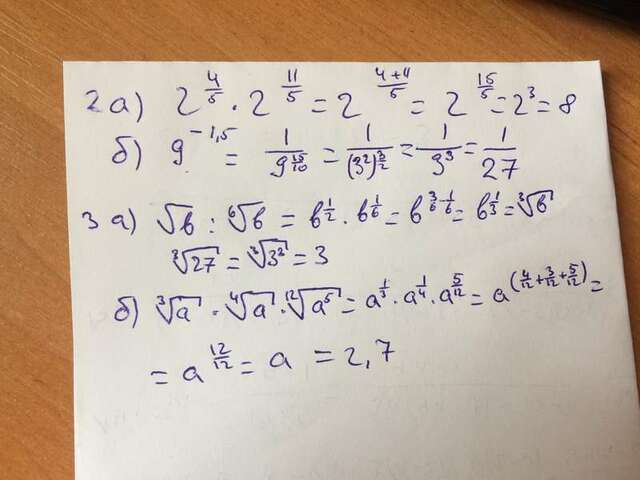 2 а) 2^(4/5) · 2^(11/5) = 2^((4+11)/5) = 2^(15/5) = 2^3 = 8
б) 9^(-1,5) = 1/9^(15/10) = 1/(3^2)^(3/2) = 1/3^3 = 1/27
3 а) √b : ⁶√b = b^(1/2) · b^(1/6) = b^(3/6-1/6) = b^(1/3) = ³√b
³√27 = ³√3^3 = 3
б) ³√a · ⁴√a · ¹²√a^5 = a^(1/3) · a^(1/4) · a^(5/12) = a^(4/12+3/12+5/12) =
= a^(12/12) = a = 2,7